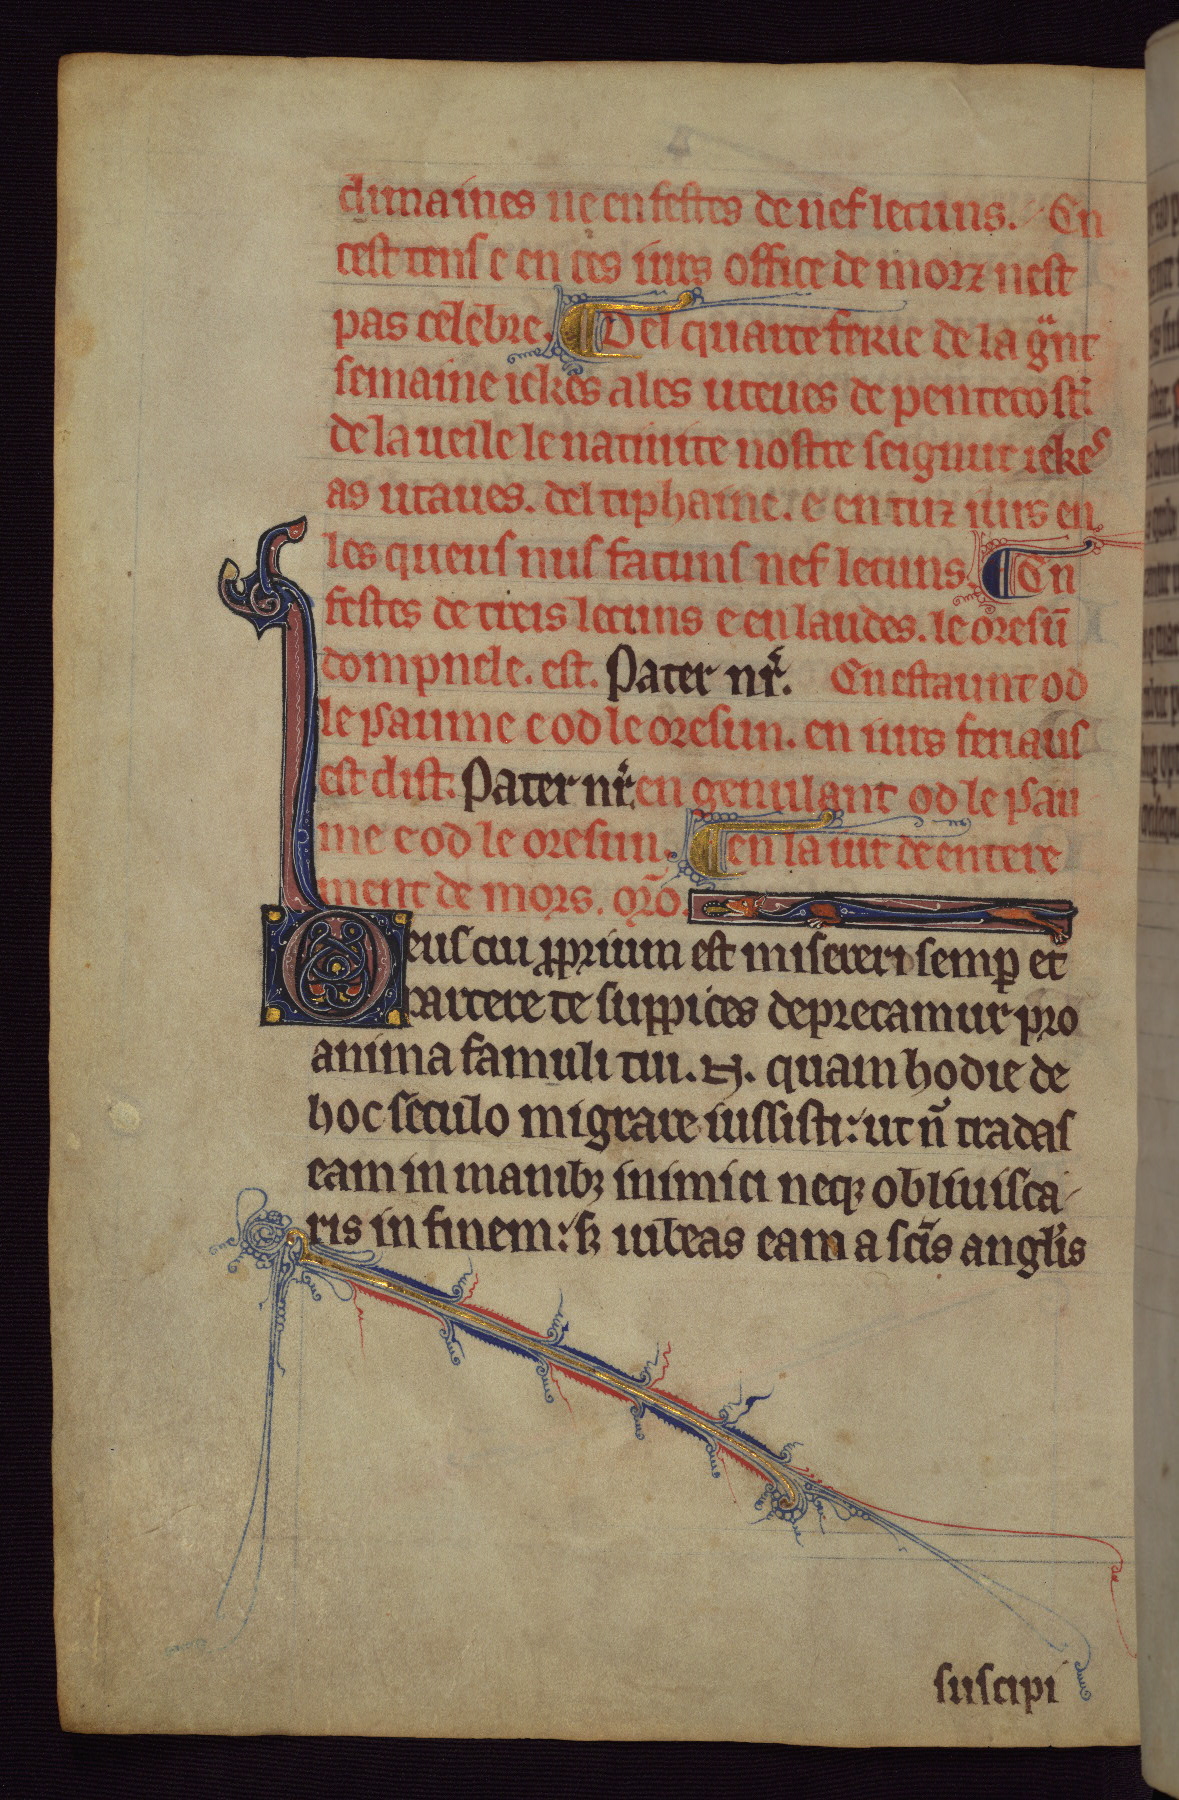 dimaines ne en festes de nef lecuns. En
cest tens e en ces iurs office de morz nest
pas celebre. Del quarte ferie de la gnt
semaine iekes a les uteues de pentecost:
de la ueile le natiuite nostre seignur iekes
as utaues. del tiphaine. e en tuz iurs en
les queus nus facuns nef lecuns. En
festes de treis lecuns e en laudes. le oresū
dompnele. est. Pater nr̄. En estaunt od
le psaume e od le oresun. en iurs feriaus
est dist. Pater nr̄. en genulant od le psau
me e od le oresun. en la iur de entere
ment de mors. orō.
Deus cui ꝓprium est misereri semꝑ et
parcere te suppices deprecamur pro
anima famuli tui. N. quam hodie de
hoc seculo migrare iussisti: ut n̄ tradas
eam in manibꝫ inimici neqꝫ obliuisca
ris in finem: sꝫ iubeas eam a scīs anglis
suscipi